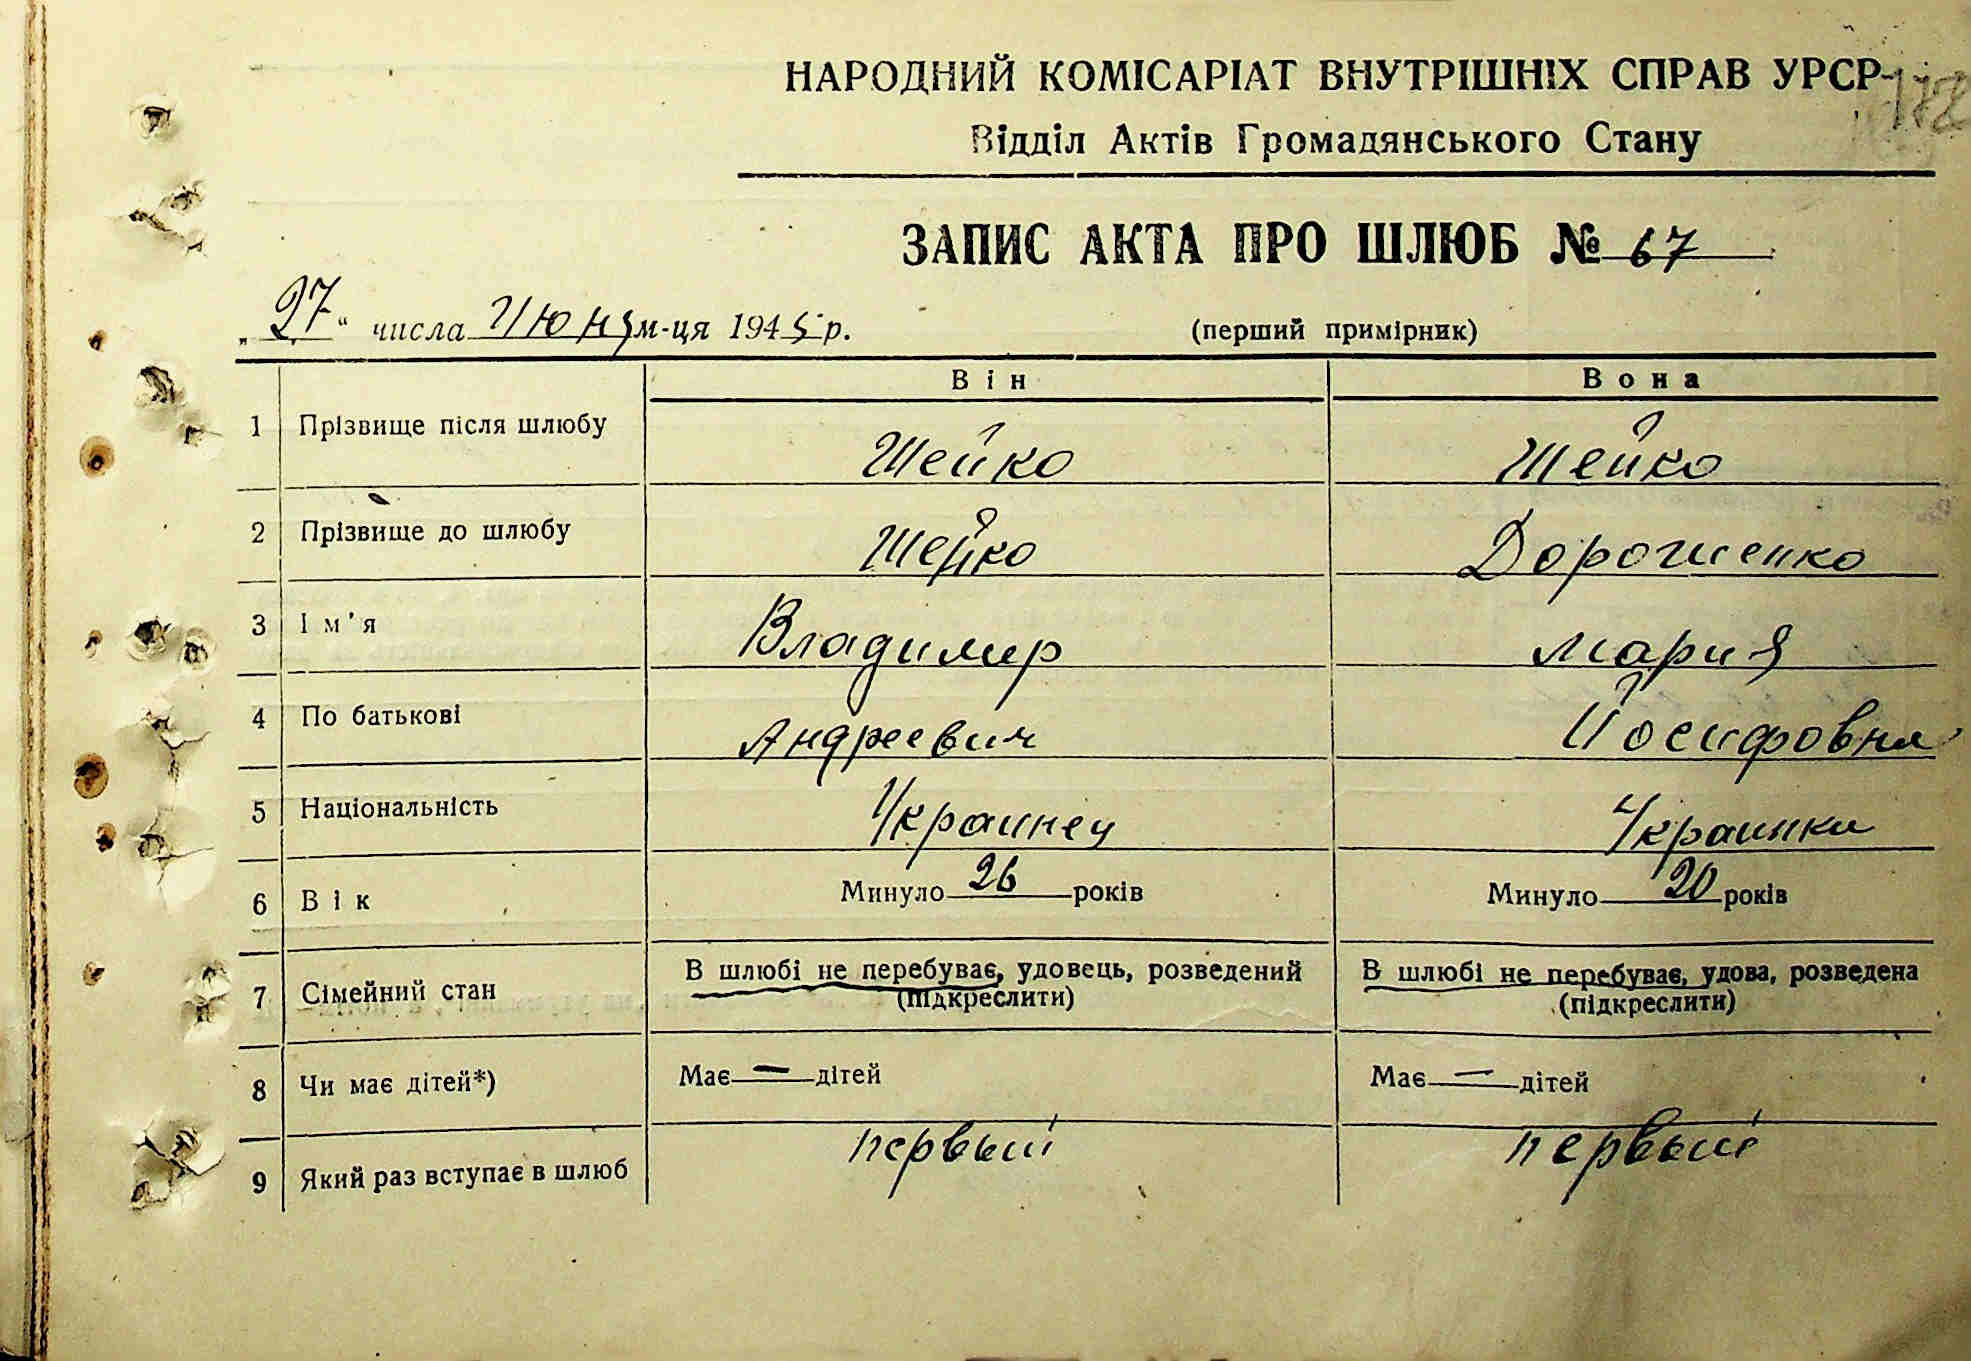 172
НАРОДНИЙ КОМІСАРІАТ ВНУТРІШНІХ СПРАВ УРСР
Відділ Актів Громадянського Стану
ЗАПИС АКТА ПРО ШЛЮБ № 67
„27“ числа Июня м-ця 1945 р. (перший примірник)
Він Вона
1 Прізвище після шлюбу Шейко Шейко
2 Прізвище до шлюбу Шейко Дорошенко
3 Ім'я Владимир Мария
4 По батькові Андреевич Иосифовна
5 Національність Украинец Украинка
6 Вік Минуло 26 років Минуло 20 років
7 Сімейний стан В шлюбі не перебуває, удовець, розведений В шлюбі не перебуває, удова, розведена
(підкреслити) (підкреслити)
8 Чи має дітей*) Має — дітей Має — дітей
9 Який раз вступає в шлюб первый первый